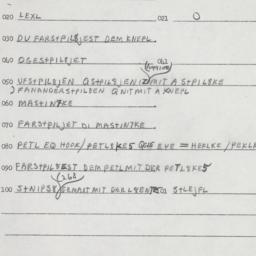 020 LEXL 021 O
030 DU FARSTPILJEST DEM KNEPL
040 OGESTPILJET
050 VFSTPILBJEN QSTPILBJEN MIT A STPILKE
FANANDERSTPILBEN QNITMIT A KNEPL
060 MASTINZKE
070 FARSTPILJET DI MASTINZKE
080 PETL EQ HOOK/PETLEKES EYE = HEFLKE/PEKLK
090 FARSTPILBEST DEM PETL MIT DER PETLEKES
100 STNIPS8 STLEJFL